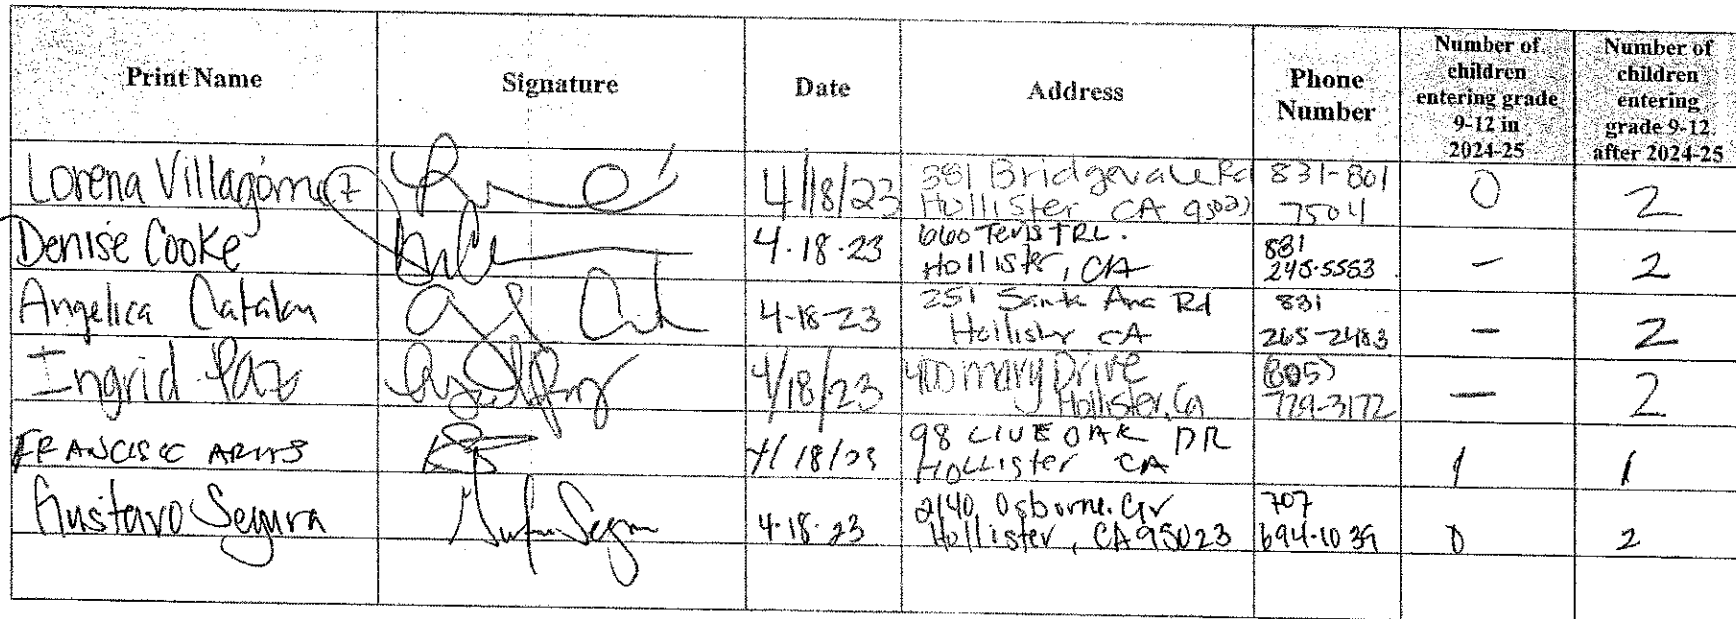 Print Name
Signature
Date
Address
Phone
Number
Number of
children
entering grade
9-12 in
2024-25
Number of
children
entering
grade 9-12
after 2024-25
Lorena Villagómez
4/18/23
381 Bridgevale Rd
Hollister CA 95023
831-801
7504
0
2
Denise Cooke
4-18-23
660 Tevis TRL.
Hollister, CA
831
245-5553
-
2
Angelica Catalan
4-18-23
251 Santa Ana Rd
Hollister CA
831
265-2483
-
2
Ingrid Paz
4/18/23
400 mary Drive
Hollister, Ca
(805)
729-3172
-
2
FRANCISCO
4/18/23
98 LIVE OAK DR
HOLLister CA
1
1
Gustavo Segura
4-18-23
2140 Osborne
Hollister, CA 95023
707
694-1039
0
2